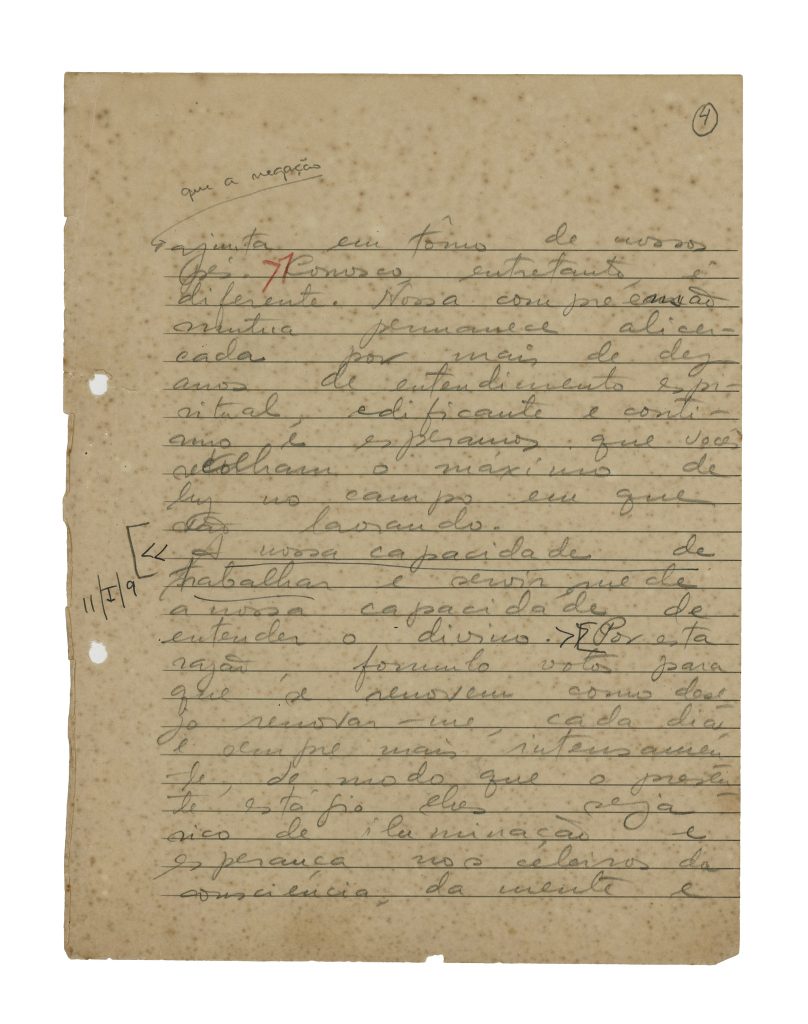 4
que a negação
ajunta em tôrno de nossos
pés. Conosco, entretanto, é
diferente. Nossa compreensão
mutua permanece alicer-
cada por mais de dez
anos de entendimento espi-
ritual, edificante e contí-
nuo e esperamos que vocês
recolham o máximo de
luz no campo em que
vão lavrando.
« A nossa capacidade de
trabalhar e servir, mede
a nossa capacidade de
entender o divino. » Por esta
razão, formulo votos para
que se renovem como dese-
jo renovar-me, cada dia,
e sempre mais intensamen-
te, de modo que o presen-
te estágio lhes seja
rico de iluminação e
esperança nos celeiros da
consciência, da mente e
11/I/9